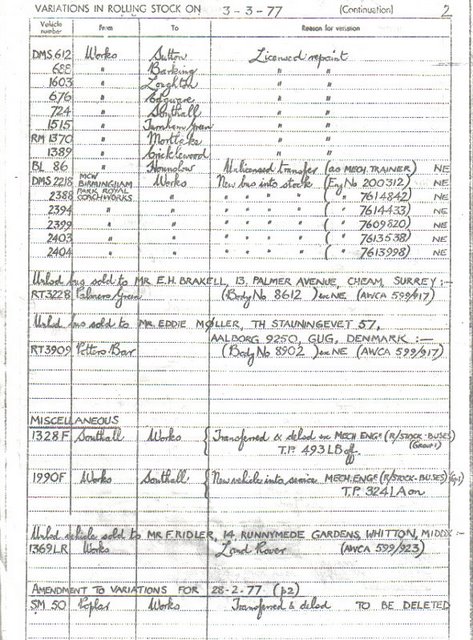 VARIATIONS IN ROLLING STOCK ON 3-3-77 (Continuation) 2
Vehicle number From To Reason for variation
DMS 612 Works Sutton Licensed repaint
688 " Barking " "
1603 " Loughton " "
676 " Edgware " "
724 " Southall " "
1515 " Turnham Green " "
RM 1370 " Mortlake " "
1389 " Cricklewood " "
BL 86 " Hounslow Unlicensed transfer (as MECH. TRAINER) NE
DMS 2218 MCW BIRMINGHAM Works New bus into stock (Eng No 200312) NE
2388 PARK ROYAL COACHWORKS " " " " " ( " 7614842) NE
2394 " " " " " " ( " 7614433) NE
2399 " " " " " " ( " 7609820) NE
2403 " " " " " " ( " 7613538) NE
2404 " " " " " " ( " 7613998) NE
Unlsd bus sold to MR E.H. BRAKELL, 13, PALMER AVENUE, CHEAM, SURREY :-
RT3228 Palmers Green (Body No 8612) ex NE (AWCA 599/917)
Unlsd bus sold to MR. EDDIE MØLLER, TH STAUNINGEVET 57,
AALBORG 9250, GUG, DENMARK :-
RT3909 Potters Bar (Body No 8902) ex NE (AWCA 599/917)
MISCELLANEOUS
1328F Southall Works Transferred & delsd ex MECH ENGR (R/STOCK-BUSES)
(GROUP 1)
T.P. 493LB off
1990F Works Southall New vehicle into service MECH. ENGR (R/STOCK-BUSES)
T.P. 324LA on
Unlsd vehicle sold to MR F. RIDLER, 14 RUNNYMEDE GARDENS, WHITTON, MIDDX :-
1369LR Works Land Rover (AWCA 599/923)
AMENDMENT TO VARIATIONS FOR 28-2-77 (p2)
SM 50 Poplar Works Transferred & delsd TO BE DELETED